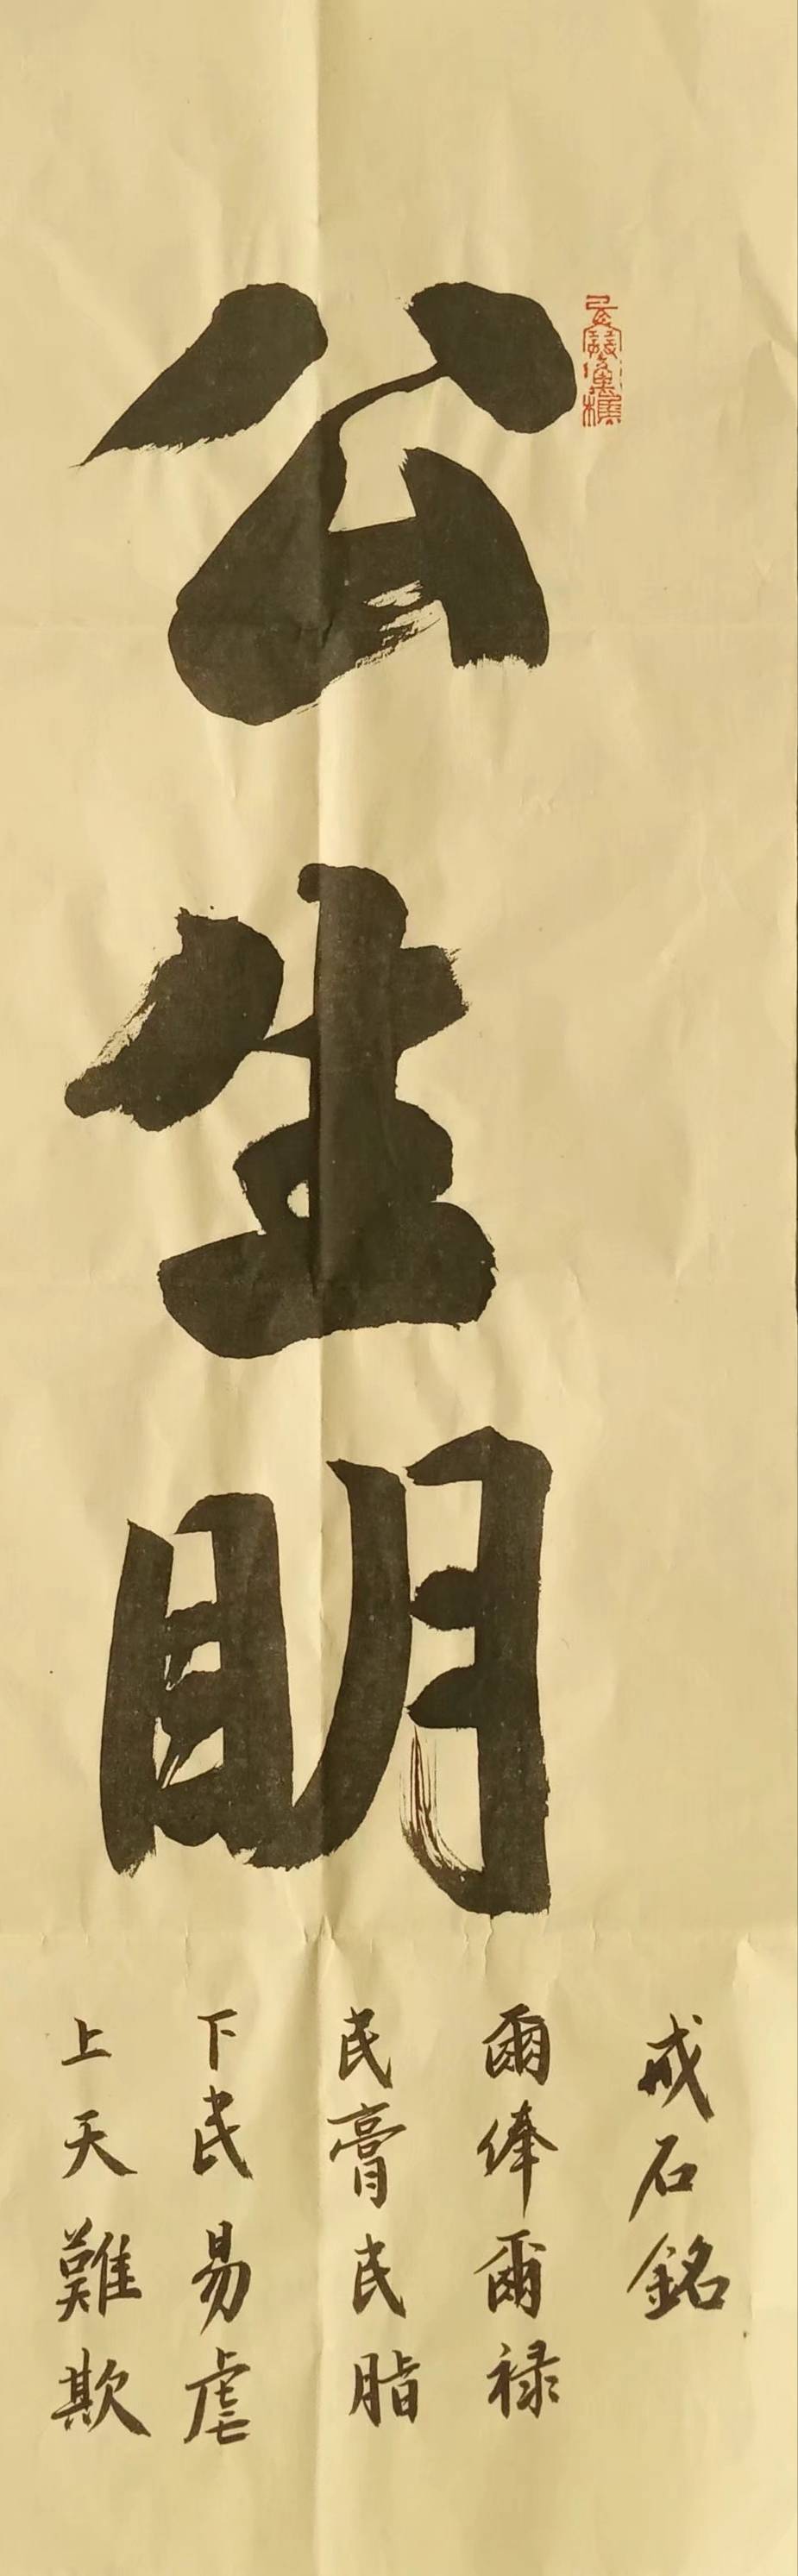 公生明
戒石銘
爾俸爾禄
民膏民脂
下民易虐
上天難欺